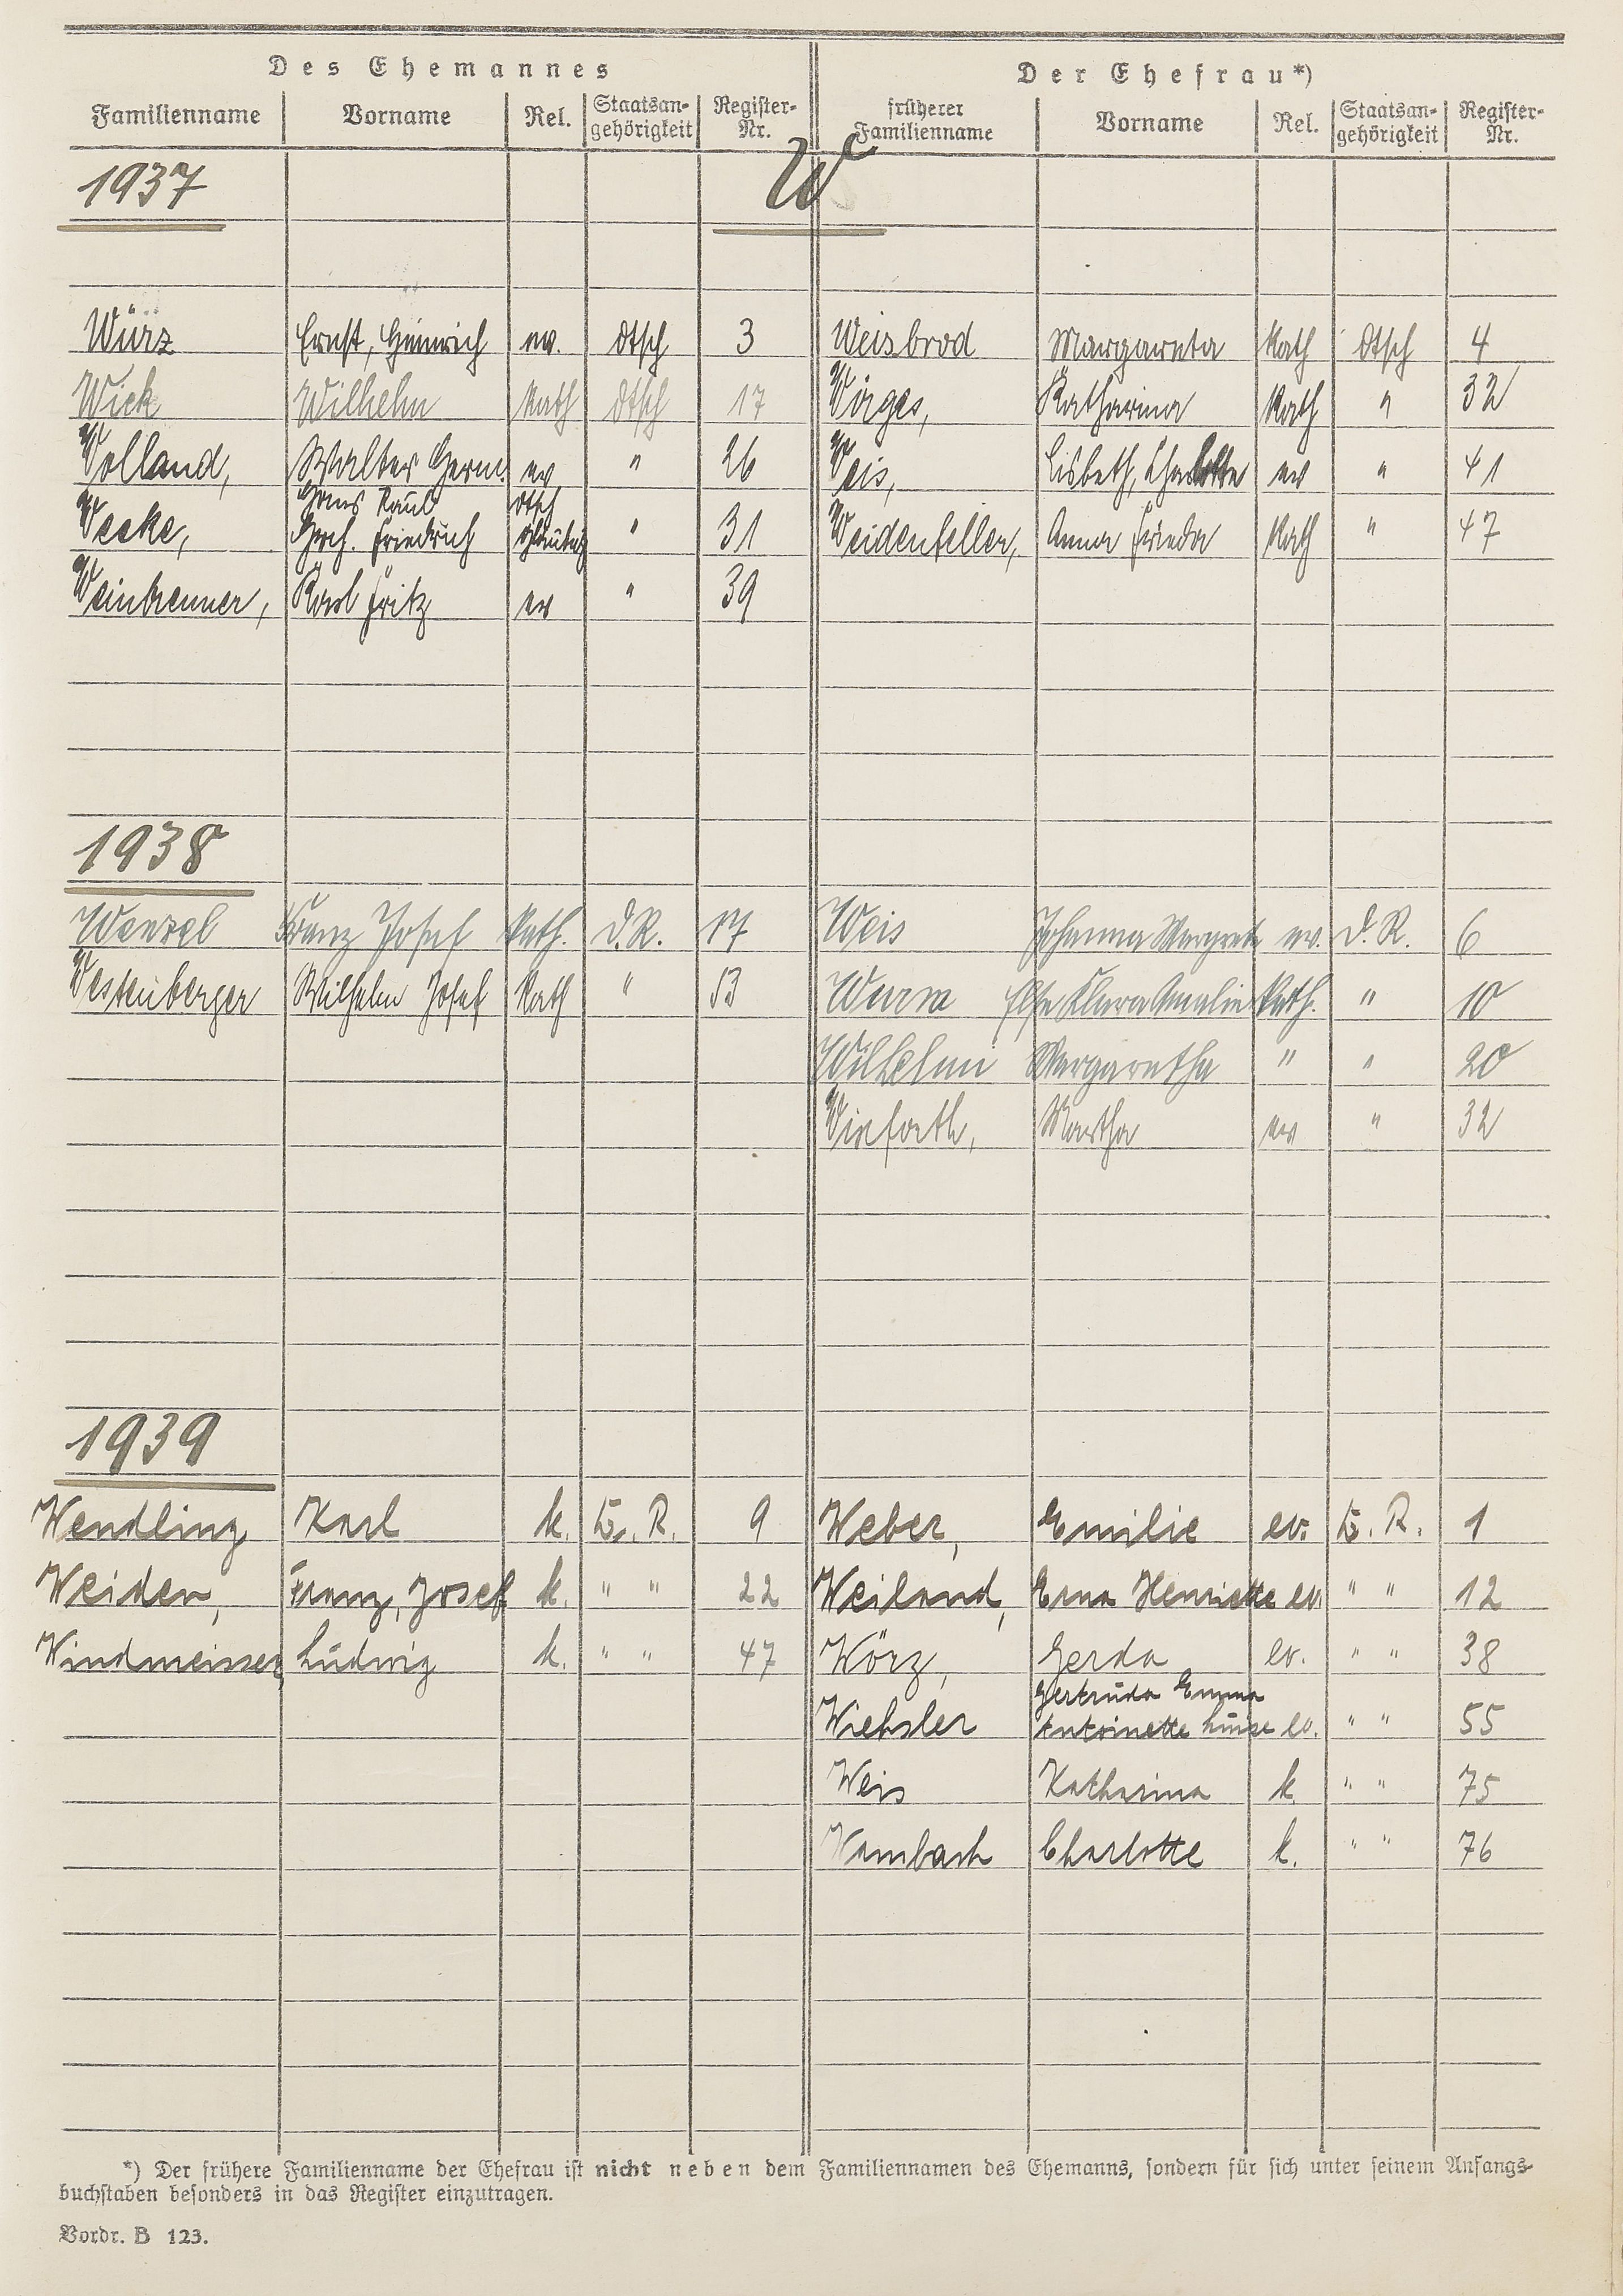 Des Ehemannes Der Ehefrau*)
Familienname Vorname Rel. Staatsan-gehörigkeit Register-Nr. früherer Familienname Vorname Rel. Staatsan-gehörigkeit Register-Nr.
1937 W
Würz Ernst, Heinrich ev. dtsch 3 Weisbrod Margareta kath dtsch 4
Wick Wilhelm kath dtsch 17 Wörges, Katharina kath " 32
Wolland, Walter Herm. ev " 26 Weis, Lisbeth, Charlotte ev " 41
Hans Paul dtsch
Weske, Friedrich " 31 Weidenfeller, Anna Frieda kath " 47
Weinbrenner, Karl Fritz ev " 39
1938
Wenzel Franz Josef kath. D.R. 17 Weis Johanna Margrete ev. D.R. 6
Westenberger Wilhelm Josef kath " 53 Wurm Else Klara Amalie kath. " 10
Wilhelmi Margaretha " " 20
Martha ev " 32
1939
Wendling Karl k. D. R. 9 Weber, Emilie ev. D. R. 1
Weiden, Franz, Josef k. " " 22 Weiland, Erna Henriette ev. " " 12
Windmeisser, Ludwig k. " " 47 Wörz, Gerda ev. " " 38
Gertruda Emma
Wiehsler Antoinette Luise ev. " " 55
Weis Katharina k. " " 75
Wambach Charlotte k. " " 76
*) Der frühere Familienname der Ehefrau ist nicht neben dem Familiennamen des Ehemanns, sondern für sich unter seinem Anfangs-
buchstaben besonders in das Register einzutragen.
Vordr. B 123.